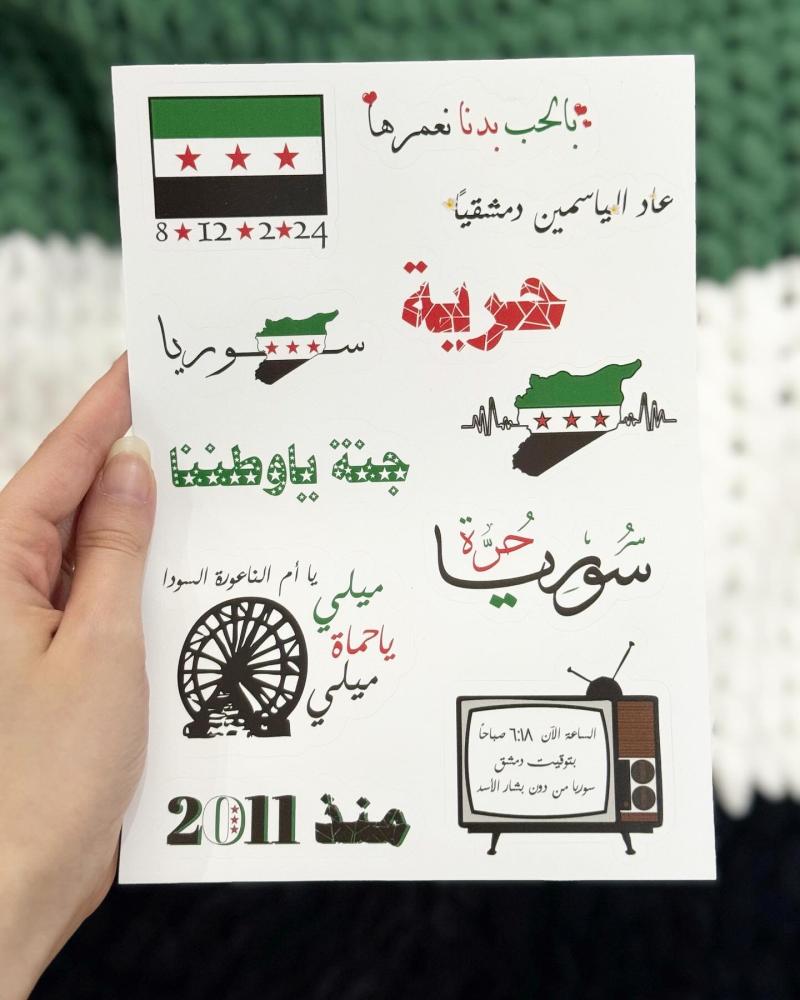 بالحب بدنا نعمرها
8★12★2★24
عاد الياسمين دمشقياً
حرية
سوريا
جنة ياوطننا
سوريا حرّة
ميلي يا أم الناعورة السودا
ياحماة
ميلي
الساعة الآن ٦:١٨ صباحاً
بتوقيت دمشق
سوريا من دون بشار الأسد
منذ 2011